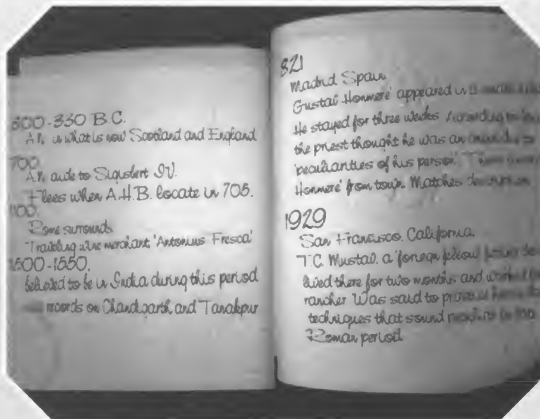 500-330 B.C.
A.R. is what is now Scotland and England
700
A.R. aide to Sigisbert IV.
Flees when A.H.B. locate in 705.
1100.
Rome surrounds
Traveling wine merchant 'Antonius Fresca'
1500-1550.
believed to be in India during this period
records on Chandigarth and Tanakpur
821
Madrid Spain
Gustaf Honmeré appeared in a small
He stayed for three weeks According to
the priest thought he was an
peculiarities of his person. There
Honmeré from town. Matches description
1929
San Francisco, California.
T.C. Mustal, a 'foreign fellow'
lived there for two months and worked
rancher Was said to practice
techniques that sound
Roman period.